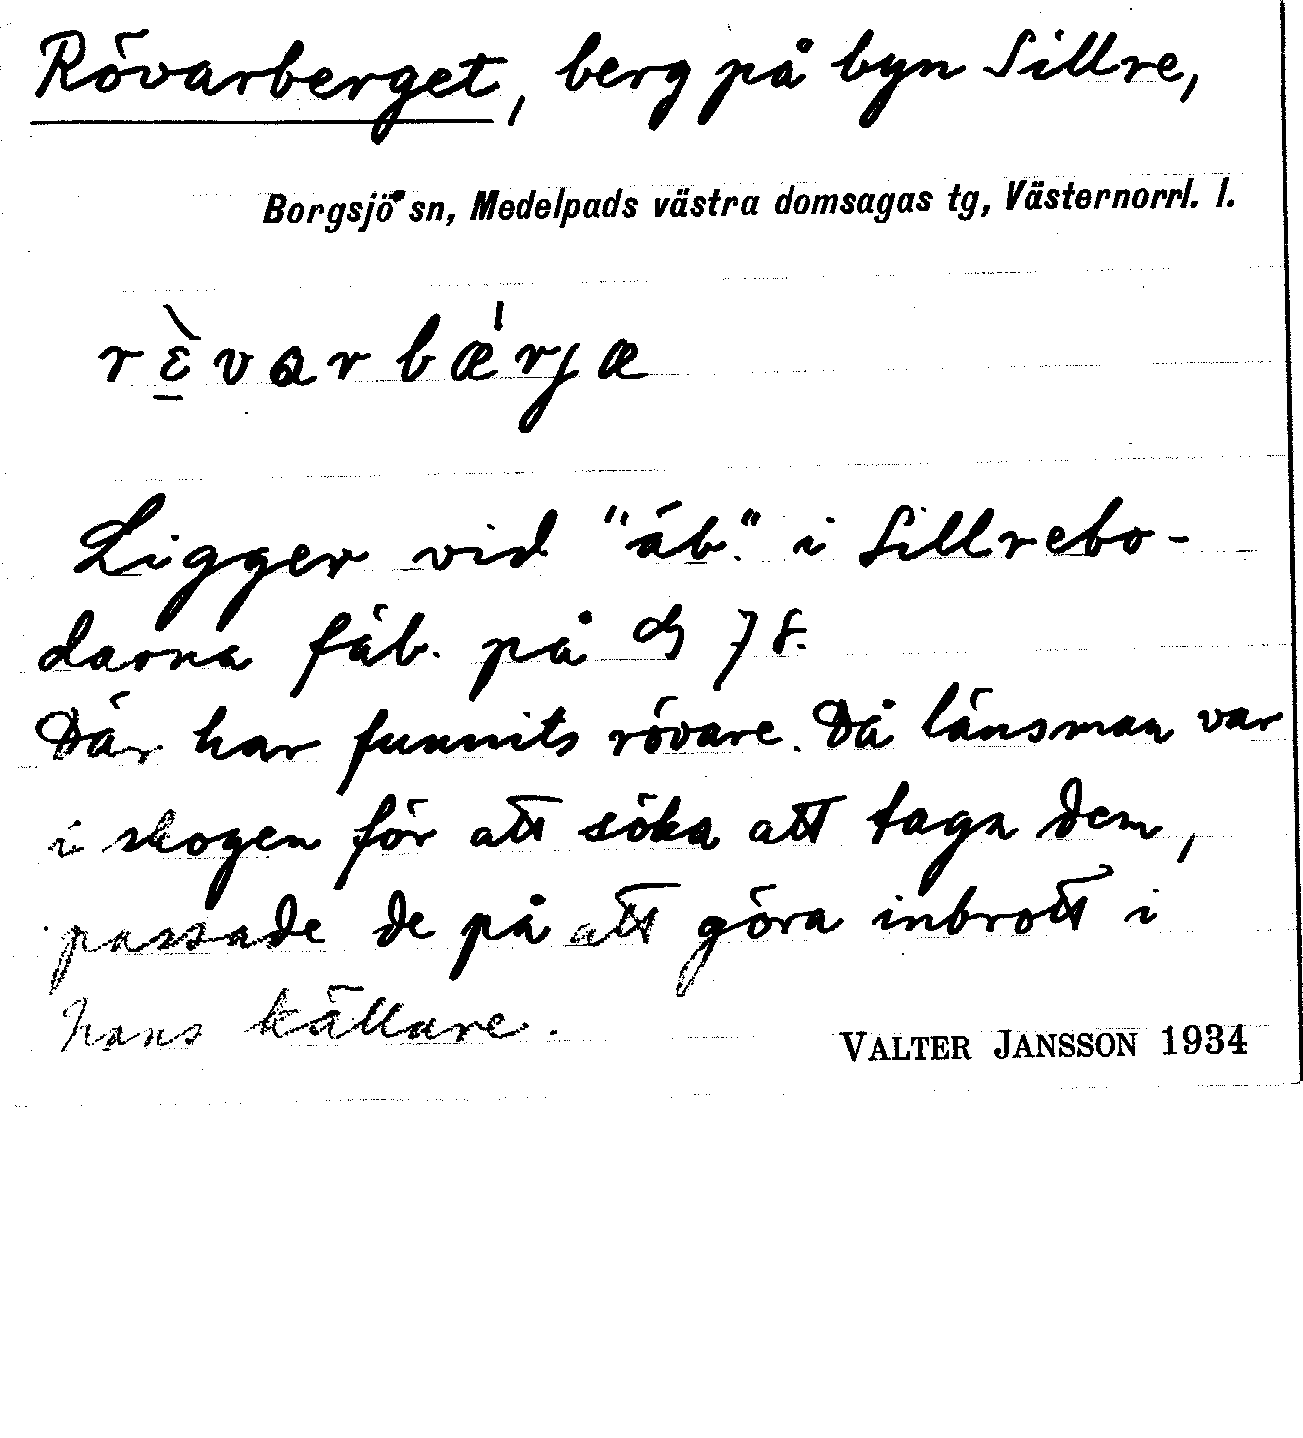 Rövarberget, berg på byn Sillre,
Borgsjö sn, Medelpads västra domsagas tg, Västernorrl. l.
rɛ̀varbǽrjæ
Ligger vid "äb." i Sillrebo-
darna fäb. på 78.
Där har funnits rövare. Då länsman var
i skogen för att söka att taga dem,
passade de på att göra inbrott i
hans källare.
VALTER JANSSON 1934